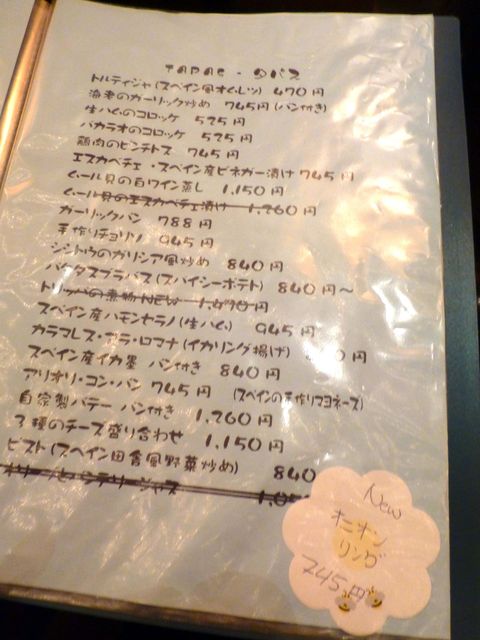 TAPAS - タパス
トルティジャ(スペイン風オムレツ) 470円
海老のガーリック炒め 745円(パン付き)
生ハムのコロッケ 525円
バカラオのコロッケ 525円
鶏肉のピンチトス 745円
エスカベチェ・スペイン産ビネガー漬け 745円
ムール貝の白ワイン蒸し 1,150円
ムール貝のエスカベチェ漬け 1,260円
ガーリックパン 788円
手作りチョリソ 945円
シシトウのガリシア風炒め 840円
パタタスブラバス(スパイシーポテト) 840円~
トリッパの煮物 NEW 1,470円
スペイン産ハモンセラノ(生ハム) 945円
カラマレス・ア・ラ・ロマナ(イカリング揚げ) 円
スペイン産イカ墨 パン付き 840円
アリオリ・コン・パン 745円 (スペインの手作りマヨネーズ)
自家製パテー パン付き 1,260円
3種のチーズ盛り合わせ 1,150円
ピスト(スペイン田舎風野菜炒め) 840
New
オニオン
リング
745円